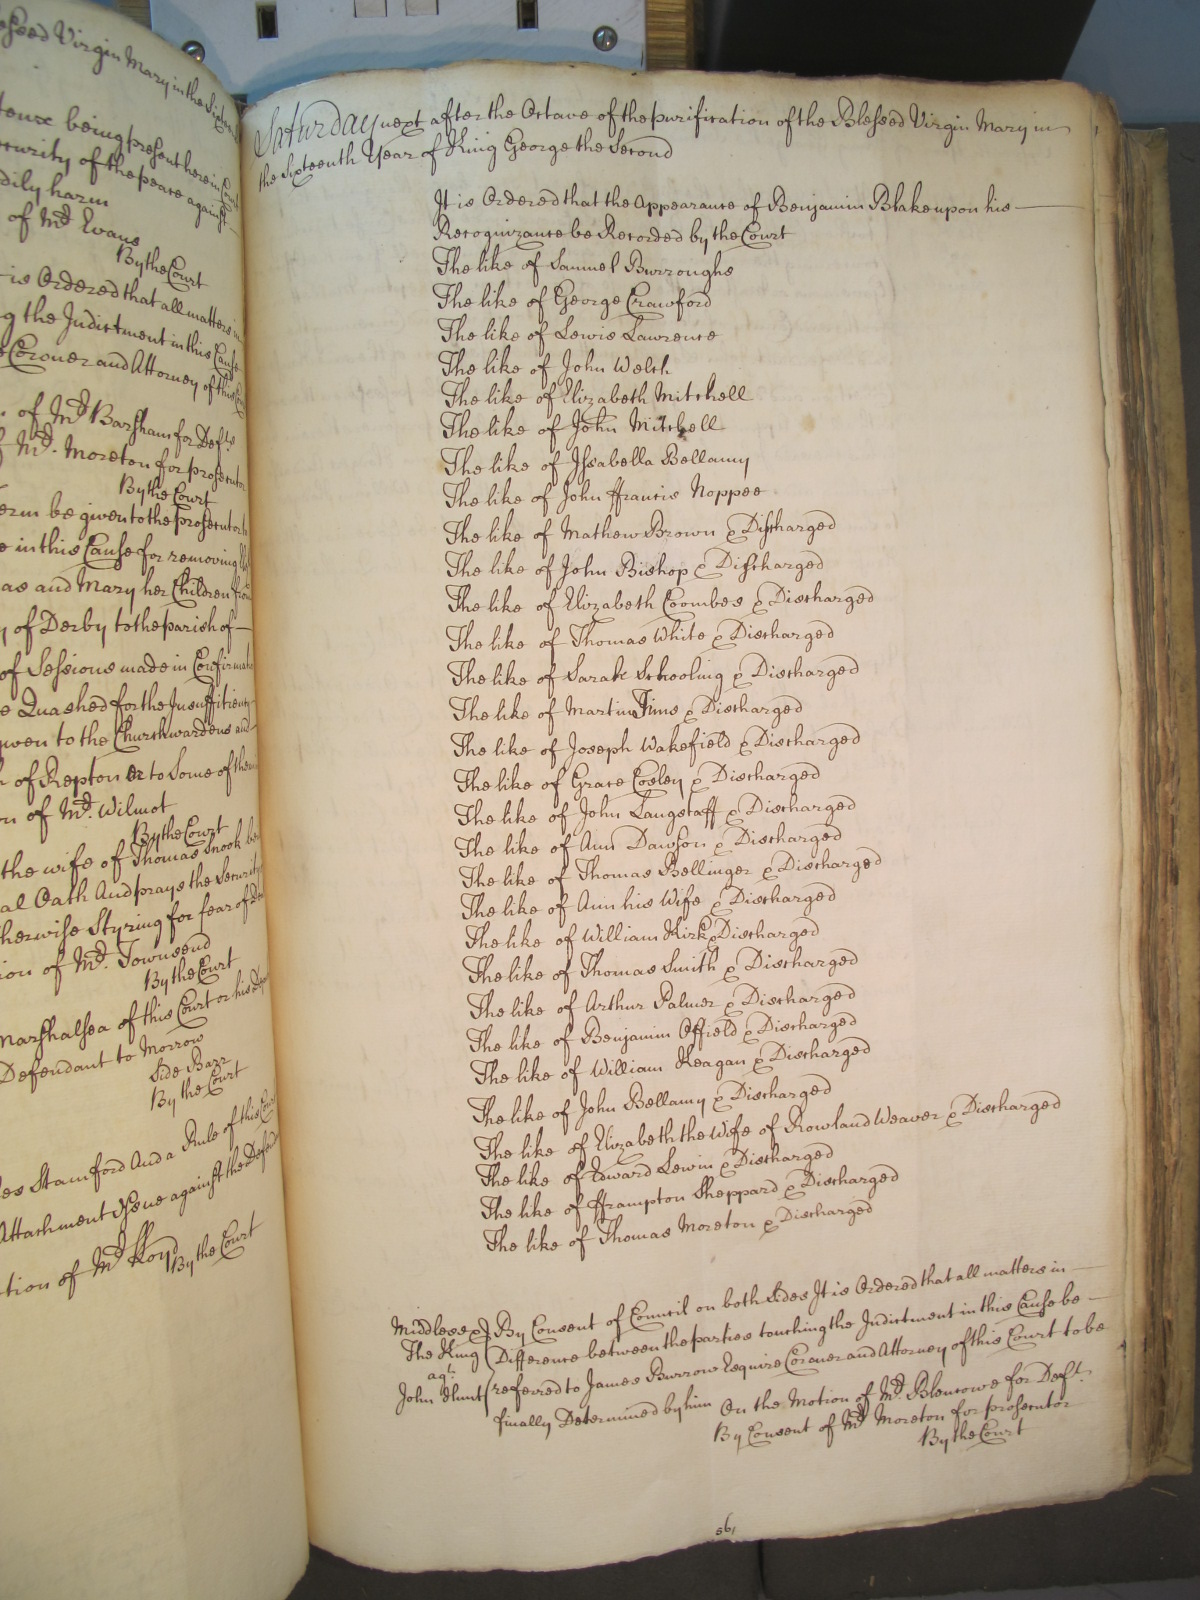 essed Virgin Mary in the
tence being present here in Court
ecurity of the peace against
dily harm
of Mr. Evans
By the Court
is Ordered that all matters in
g the Indictment in this Cause
e Coroner and Attorney of this
of Mr. Barsham for Defts.
Mr. Moreton for prosecutor
By the Court
erm be given to the prosecutor
e in this Cause for removing
as and Mary her Children from
y of Derby to the parish of
of Sessions made in Confirmat
e Quashed for the Insufficiency
given to the Churchwardens and
h of Repton or to Some of them
on of Mr. Wilmot
By the Court
the wife of Thomas Snook
al Oath And prays the Security
herwise Styring for fear of
ion of Mr. Townsend
By the Court
Marshalsea of this Court or his
Defendant to Morrow
Side Barr
By the Court
es Stamford And a Rule of this Court
Attachment Issue against the
tion of Mr. Lloyd
By the Court
Saturday next after the Octave of the purification of the Blessed Virgin Mary in
the Sixteenth Year of King George the Second
It is Ordered that the Appearance of Benjamin Blake upon his
Recognizance be Recorded by the Court
The like of Samuel Burroughs
The like of George Crawford
The like of Lewis Lawrence
The like of John Welch
The like of Elizabeth Mitchell
The like of John Mitchell
The like of Issabella Bellamy
The like of John ffrancis Noppee
The like of Mathew Brown & Discharged
The like of John Bishop & Discharged
The like of Elizabeth Coombes & Discharged
The like of Thomas White & Discharged
The like of Sarah Schooling & Discharged
The like of Martin Jims & Discharged
The like of Joseph Wakefield & Discharged
The like of Grace Cosley & Discharged
The like of John Langstaff & Discharged
The like of Ann Dawson & Discharged
The like of Thomas Bellinger & Discharged
The like of Ann his Wife & Discharged
The like of William Kirk & Discharged
The like of Thomas Smith & Discharged
The like of Arthur Palmer & Discharged
The like of Benjamin Offield & Discharged
The like of William Keagan & Discharged
The like of John Bellamy & Discharged
The like of Elizabeth the Wife of Rowland Weaver & Discharged
The like of Edward Lewin & Discharged
The like of fframpton Sheppard & Discharged
The like of Thomas Moreton & Discharged
Middlesex By Consent of Council on both Sides It is Ordered that all matters in
The King Difference between the parties touching the Indictment in this Cause be
agt.
John Hunt referred to James Burrow Esquire Coroner and Attorney of this Court to be
finally Determined by him On the Motion of Mr. Blencowe for Deft.
By Consent of Mr. Moreton for prosecutor
By the Court